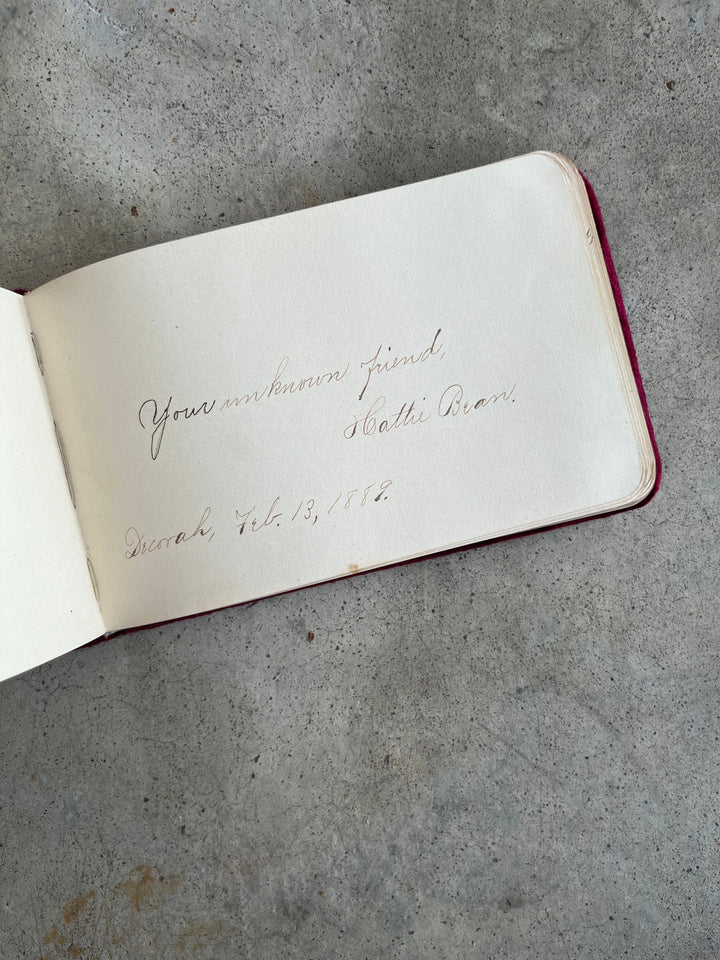 Your unknown friend,
Hattie Bean.
Decorah, Feb. 13, 1889.